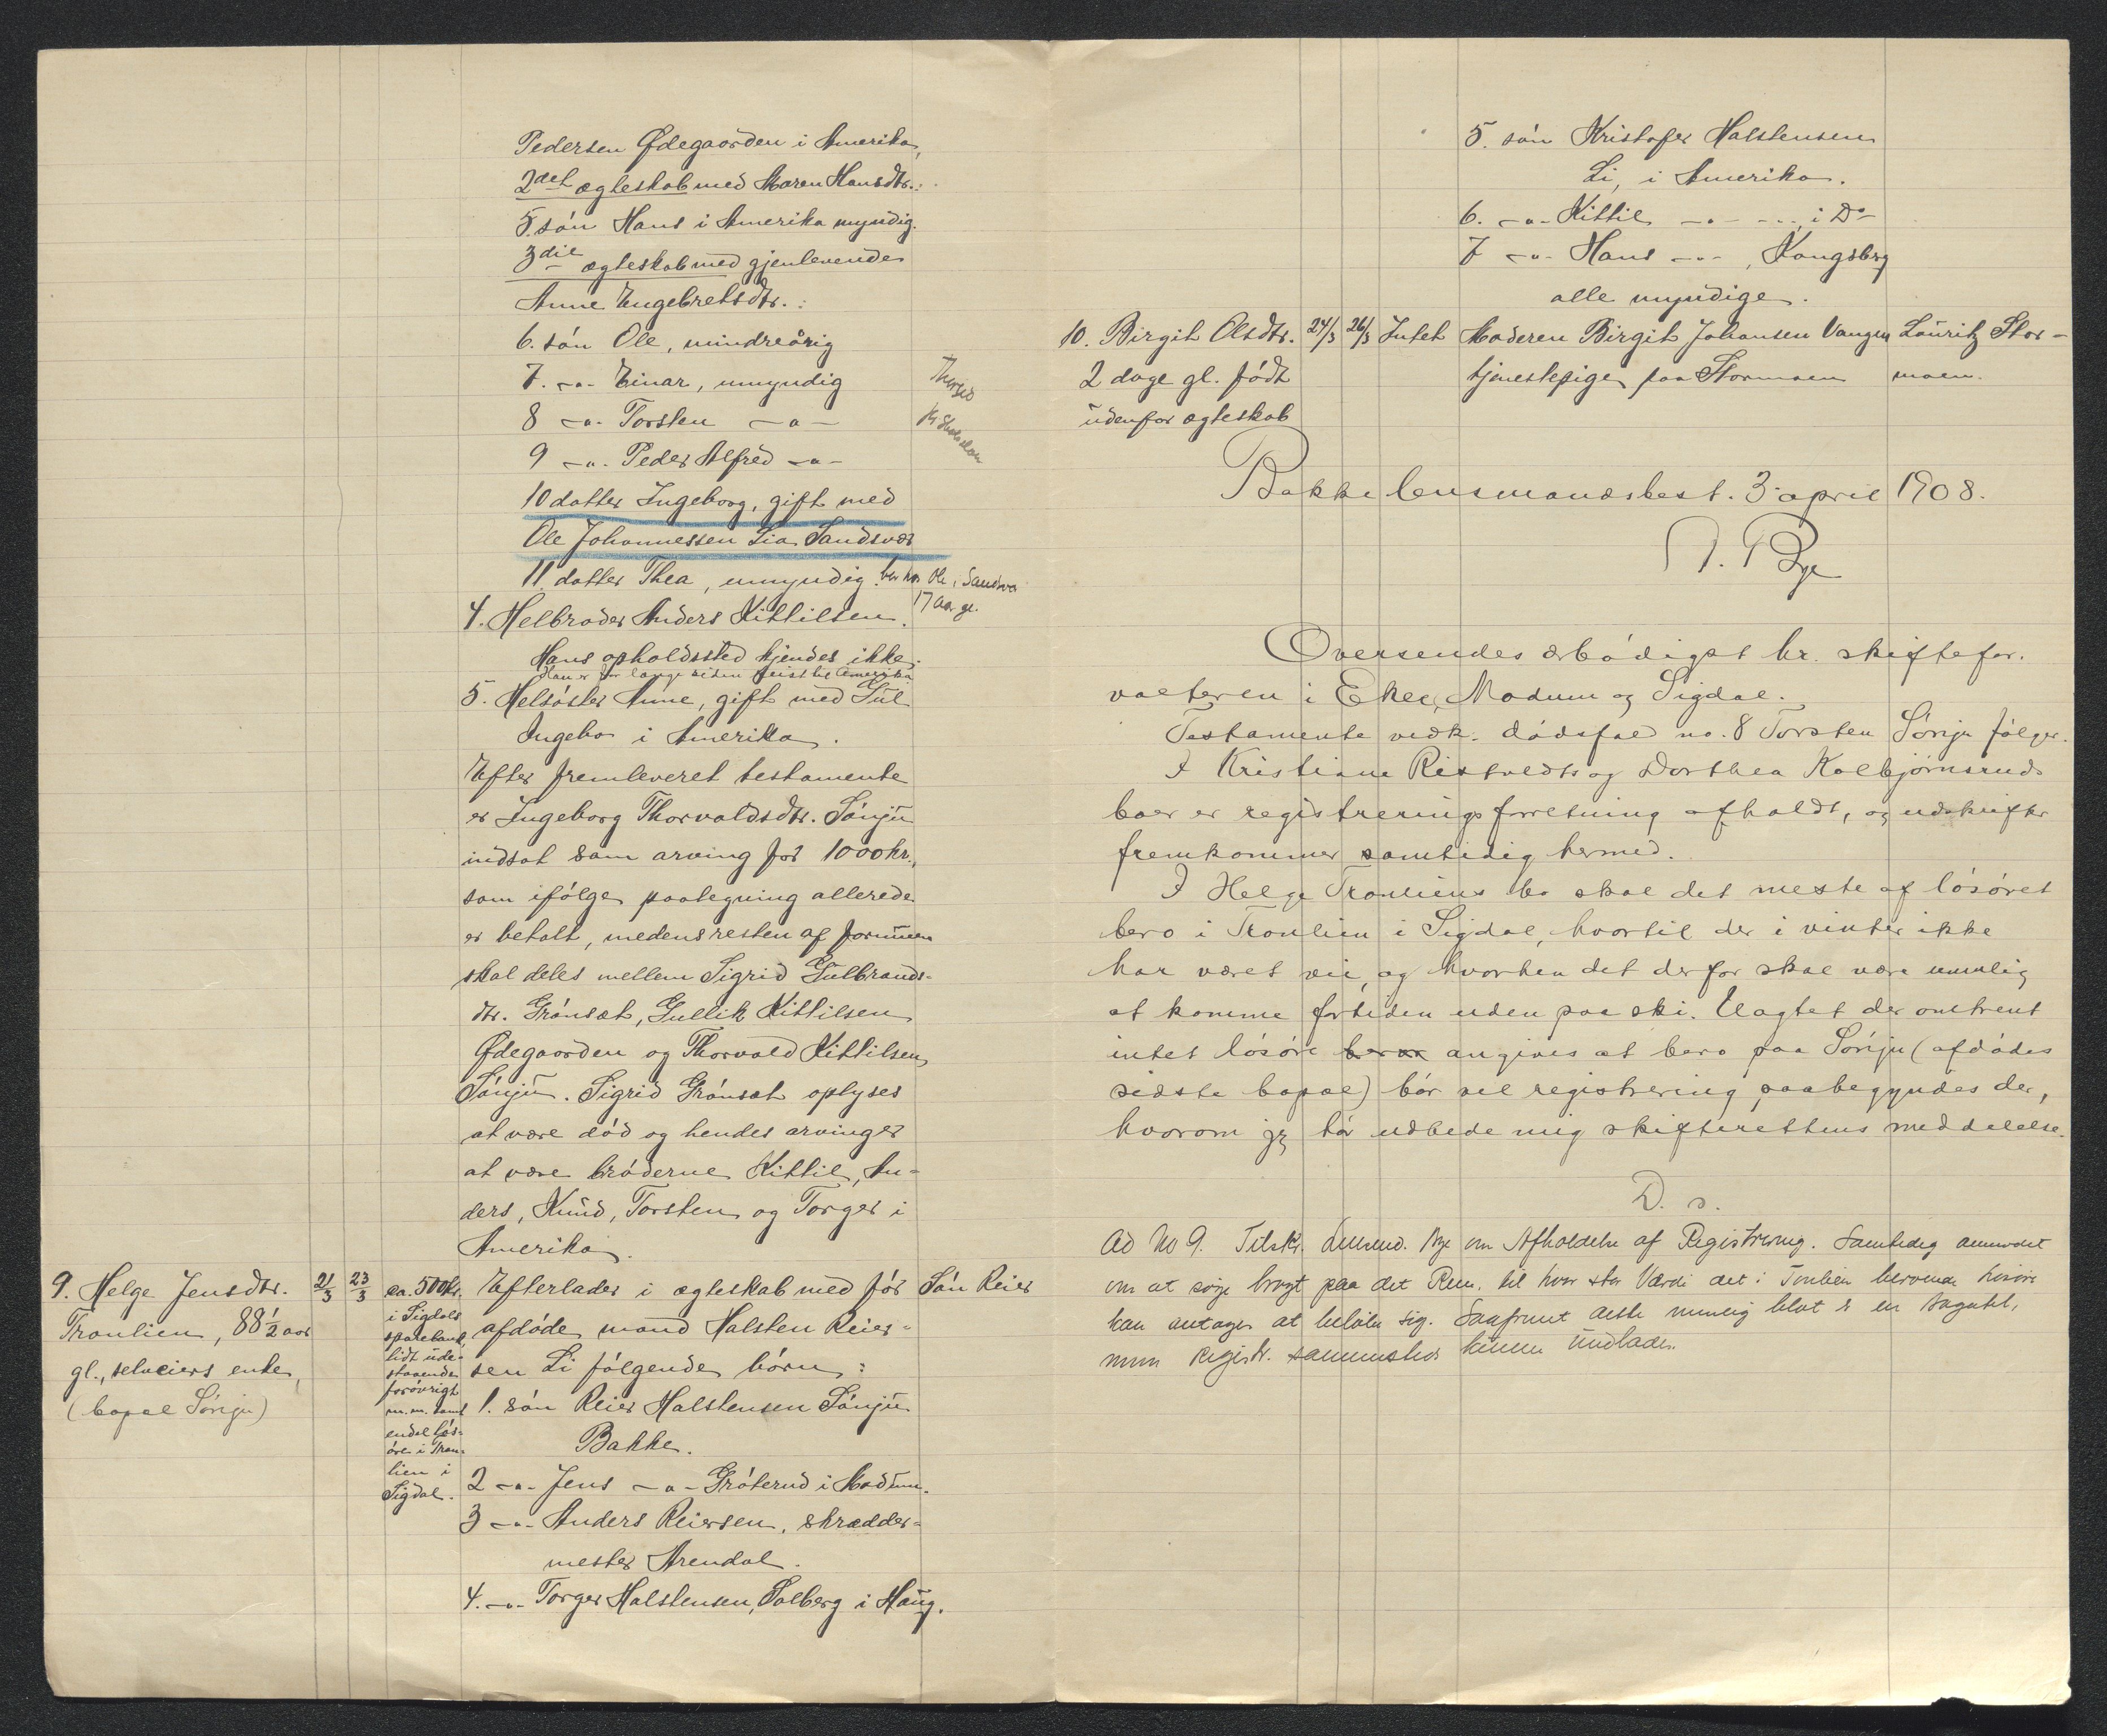 Pedersen Ødegaarden i Amerika,
2det ægteskab med Maren Hansdtr.:
5. søn Hans i Amerika myndig.
3die ægteskab med gjenlevende
Anne Engebretsdtr.:
6. søn Ole, mindreårig
7. -"- Einar, umyndig
8 -"- Torsten -"-
9 -"- Peder Alfred -"-
10 datter Ingeborg, gift med
Ole Johannessen Lia Sandsvær
11 datter Thea, umyndig. bor hos Ole i Sandsvær
17 aar gl.
4. Helbroder Anders Kittilsen.
Hans opholdssted kjendes ikke.
Han er for længe siden reist til Amerika
5. Helsøster Anne, gift med Gul
Ingebo i Amerika.
Efter fremleveret testamente
er Ingeborg Thorvaldsdtr. Sønju
indsat som arving for 1000 kr.,
som ifølge paategning allerede
er betalt, medens resten af formuen
skal deles mellem Sigrid Gulbrands-
dtr. Grønsæt, Gullik Kittilsen
Ødegaarden og Thorvald Kittilsen
Sønju. Sigrid Grønsæt oplyses
at være død og hendes arvinger
at være brøderne Kittil, An-
ders, Knud, Torsten og Torger i
Amerika.
9. Helge Jensdtr.
Tronlien, 88½ aar
gl., selveiers enke,
(bopæl Sønju)
21/3
23/3
ca. 500 kr.
i Sigdals
sparebank,
lidt ude-
staaende
forøvrigt
m.m. samt
endel løs-
øre i Tron-
lien i
Sigdal.
Efterlader i ægteskab med før
afdøde mand Halsten Reier-
sen Li følgende børn:
1. søn Reier Halstensen Sønju
Bakke.
2 -"- Jens -"- Grøterud i Modum.
3 -"- Anders Reiersen, skrædder-
mester Arendal.
4. -"- Torger Halstensen, Solberg i Haug.
Søn Reier
5. søn Kristofer Halstensen
Li, i Amerika.
6. -"- Kittil -"- -"- i Do
7 -"- Hans -"-, Kongsberg
alle myndige.
10. Birgit Olsdtr. 24/3 26/3 Intet Moderen Birgit Johansen Vangen Lauritz Stor-
2 dage gl. født tjenestepige paa Stormoen moen.
udenfor ægteskab
Bakke lensmandsbest. 3 april 1908.
A. Bye
Oversendes ærbødigst hr. skiftefor-
valteren i Eker, Modum og Sigdal.
Testamente vedk. dødsfald no. 8 Torsten Sønju følger.
I Kristiane Ristvedts og Dorthea Kolbjørnsruds
boer er registreringsforretning afholdt, og udskrifter
fremkommer samtidig hermed.
I Helge Tronliens bo skal det meste af løsøret
bero i Tronlien i Sigdal, hvortil der i vinter ikke
har været vei, og hvorhen det derfor skal være umulig
at komme fortiden uden paa ski. Uagtet der omtrent
intet løsøre angives at bero paa Sønju (afdødes
sidste bopæl) bør vel registrering paabegyndes der,
hvorom jeg tør udbede mig skifterettens meddelelse.
D. s.
Ad No 9. Tilskr. Lensmd. Bye om Afholdelse af Registrering. Samtidig anmodet
om at søge bragt paa det Rene, til hvor stor Værdi det i Tronlien beroende Løsøre
kan antages at beløbe sig. Saafremt dette nemlig blot er en Bagatel,
vil Registr. sammesteds kunne undlades.